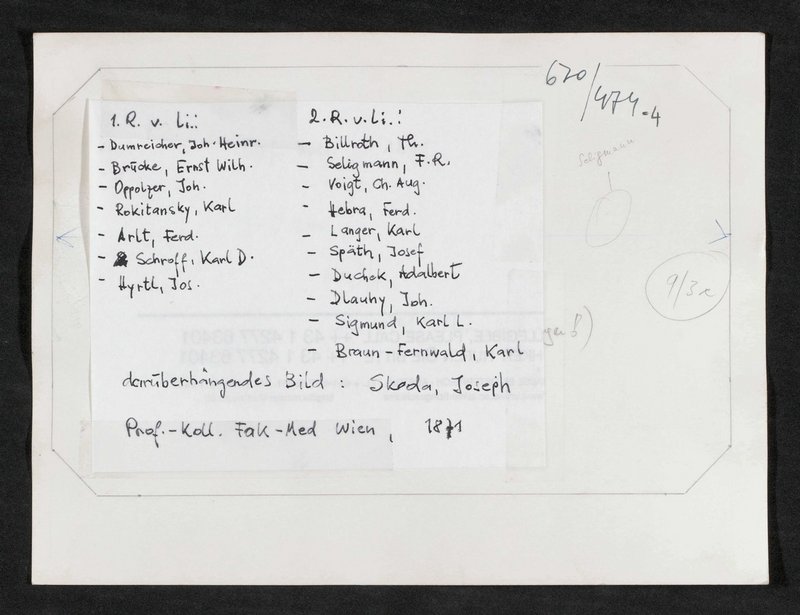 620/474.4
1. R. v. Li.:
- Dumreicher, Joh. Heinr.
- Brücke, Ernst Wilh.
- Oppolzer, Joh.
- Rokitansky, Karl
- Arlt, Ferd.
- Schroff, Karl D.
- Hyrtl, Jos.
2. R. v. Li.:
- Billroth, Th.
- Seligmann, F.R.
- Voigt, Ch. Aug.
- Hebra, Ferd.
- Langer, Karl
- Späth, Josef
- Duchek, Adalbert
- Dlauhy, Joh.
- Sigmund, Karl L.
- Braun-Fernwald, Karl
darüberhängendes Bild: Skoda, Joseph
Prof.-Koll. Fak-Med Wien, 1871
Seligmann